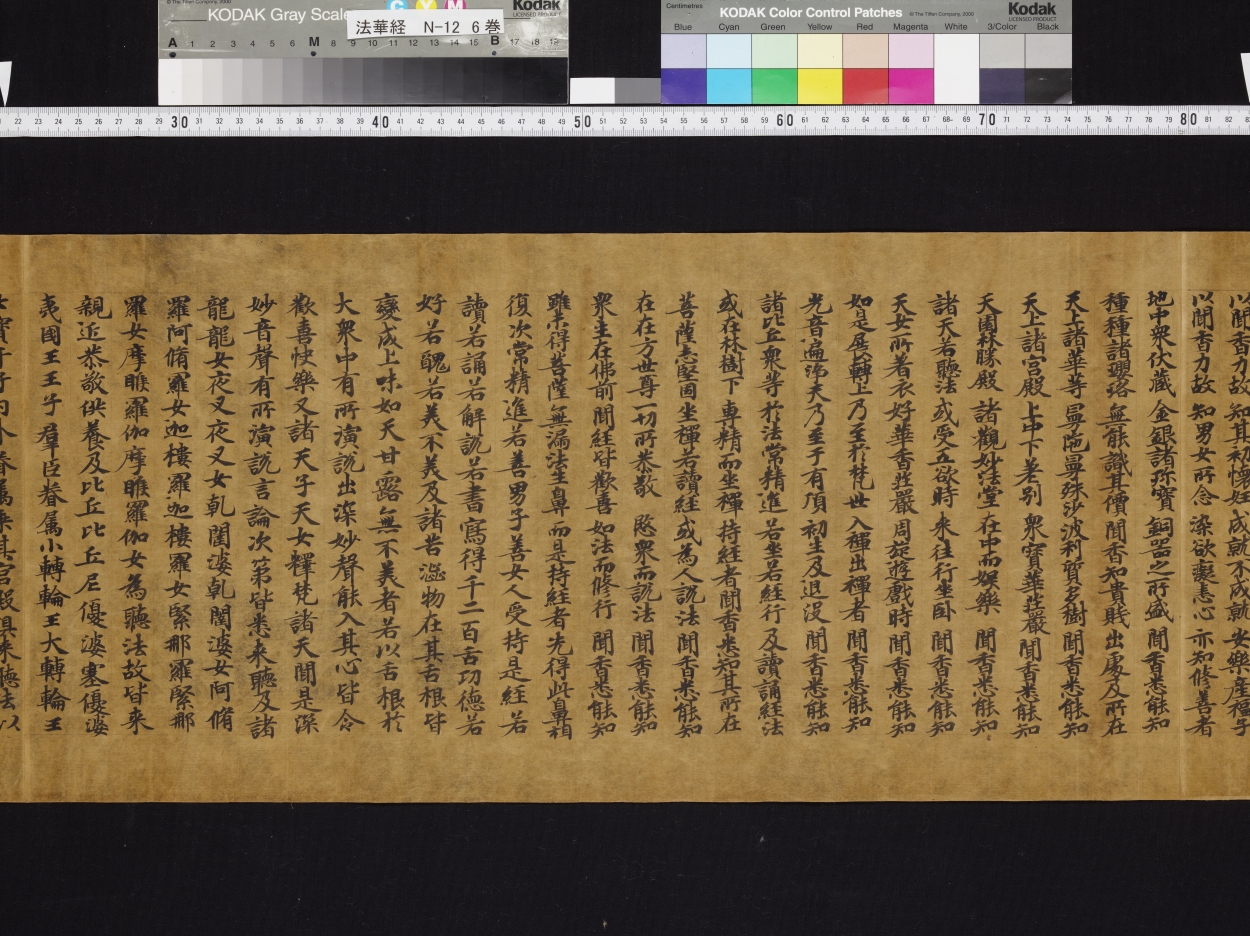 © The Tiffen Company, 2000
KODAK Gray Scale
C Y M
Kodak
LICENSED PRODUCT
法華経 N-12 6巻
A 1 2 3 4 5 6 M 8 9 10 11 12 13 14 15 B 17 18 19
Centimetres
KODAK Color Control Patches
© The Tiffen Company, 2000
Kodak
LICENSED PRODUCT
Blue Cyan Green Yellow Red Magenta White 3/Color Black
22 23 24 25 26 27 28 29 30 31 32 33 34 35 36 37 38 39 40 41 42 43 44 45 46 47 48 49 50 51 52 53 54 55 56 57 58 59 60 61 62 63 64 65 66 67 68 69 70 71 72 73 74 75 76 77 78 79 80 81 82
以聞香力故 知其初懷妊 成就不成就 安樂產福子
以聞香力故 知男女所念 染欲癡恚心 亦知修善者
地中衆伏蔵 金銀諸珎寶 銅器之所盛 聞香悉能知
種種諸瓔珞 無能識其價 聞香知貴賤 出處及所在
天上諸華等 曼陁曼殊沙 波利質多樹 聞香悉能知
天上諸宮殿 上中下差別 衆寶華莊嚴 聞香悉能知
天園林勝殿 諸觀妙法堂 在中而娛樂 聞香悉能知
諸天若聽法 或受五欲時 来往行坐卧 聞香悉能知
天女所著衣 好華香莊嚴 周旋遊戲時 聞香悉能知
如是展轉上 乃至於梵世 入禪出禪者 聞香悉能知
光音遍淨天 乃至于有頂 初生及退没 聞香悉能知
諸比丘衆等 於法常精進 若坐若経行 及讀誦経法
或在林樹下 専精而坐禪 持経者聞香 悉知其所在
菩薩志堅固 坐禪若讀経 或為人説法 聞香悉能知
在在方世尊 一切所恭敬 愍衆而説法 聞香悉能知
衆生在佛前 聞経皆歡喜 如法而修行 聞香悉能知
雖未得菩薩 無漏法生鼻 而是持経者 先得此鼻相
復次常精進若善男子善女人受持是経若
讀若誦若解説若書寫得千二百舌功德若
好若醜若美不美及諸苦澁物在其舌根皆
變成上味如天甘露無不美者若以舌根於
大衆中有所演説出深妙聲能入其心皆令
歡喜快樂又諸天子天女釋梵諸天聞是深
妙音聲有所演説言論次第皆悉来聽及諸
龍龍女夜叉夜叉女乹闥婆乹闥婆女阿脩
羅阿脩羅女迦樓羅迦樓羅女緊那羅緊那
羅女摩睺羅伽摩睺羅伽女為聽法故皆来
親近恭敬供養及比丘比丘尼優婆塞優婆
夷國王王子羣臣眷属小轉輪王大轉輪王
七寶千子内外眷属乗其宮殿俱来聽法以